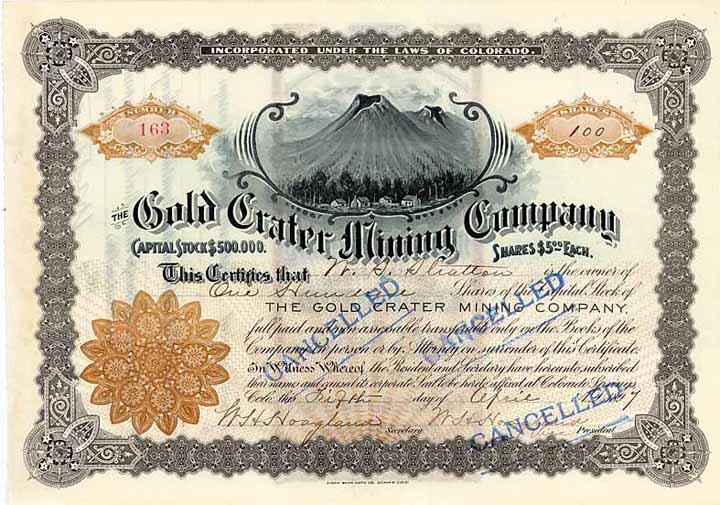 INCORPORATED UNDER THE LAWS OF COLORADO.
NUMBER
163
SHARES
100
THE Gold Crater Mining Company
CAPITAL STOCK $500.000.
SHARES $5.00 EACH.
This Certifies that W. S. Stratton is the owner of
One Hundred Shares of the Capital Stock of
THE GOLD CRATER MINING COMPANY,
full paid and non assessable transferable only on the Books of the
Company in person or by Attorney on surrender of this Certificate.
In Witness Whereof the President and Secretary have hereunto subscribed
their names and caused its corporate Seal to be hereto affixed at Colorado Springs,
Colo. this Fifth day of April 1897
W H Hoagland
Secretary
President
CANCELLED
CANCELLED
CANCELLED